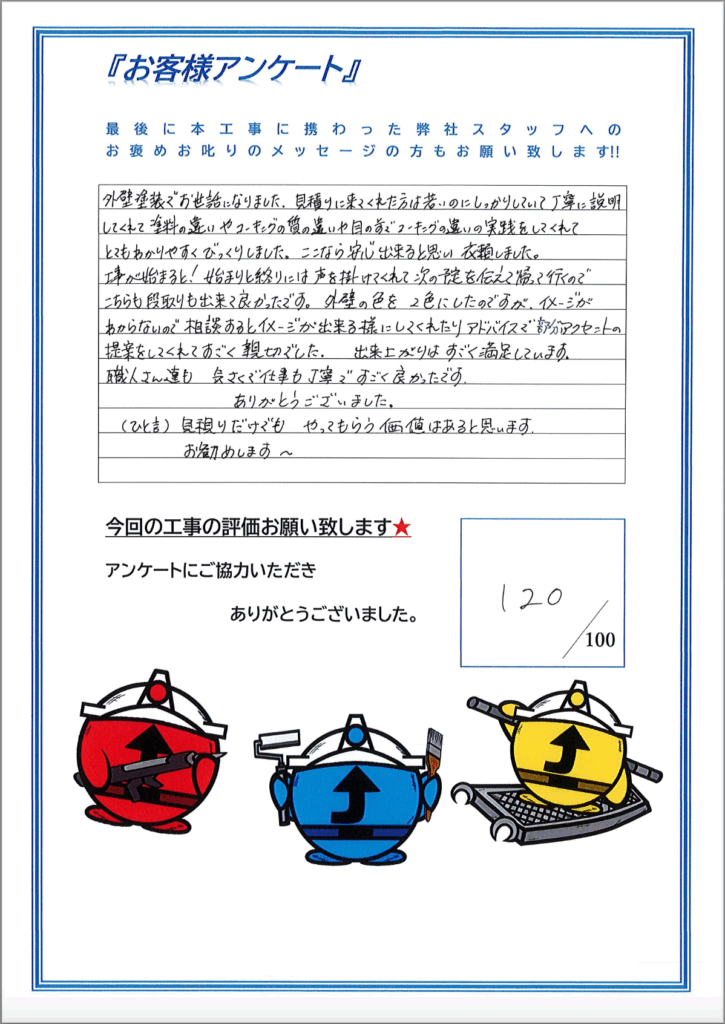 『お客様アンケート』
最後に本工事に携わった弊社スタッフへの
お褒めお叱りのメッセージの方もお願い致します!!
外壁塗装でお世話になりました。見積りに来てくれた方は若いのにしっかりしていて丁寧に説明
してくれて塗料の違いやコーキングの質の違いや目の前でコーキングの違いの実践をしてくれて
とてもわかりやすくびっくりしました。ここなら安心出来ると思い依頼しました。
工事が始まると!始まりと終りには声を掛けてくれて次の予定を伝えて帰って行くので
こちらも段取りも出来て良かったです。外壁の色を2色にしたのですが、イメージが
わからないので相談するとイメージが出来る様にしてくれたりアドバイスで部分アクセントの
提案をしてくれてすごく親切でした。 出来上がりはすごく満足しています。
職人さん達も 気さくで仕事も丁寧ですごく良かったです。
ありがとうございました。
(ひと言) 見積りだけでも やってもらう価値はあると思います。
お勧めします〜
今回の工事の評価お願い致します★
アンケートにご協力いただき
ありがとうございました。
120/100